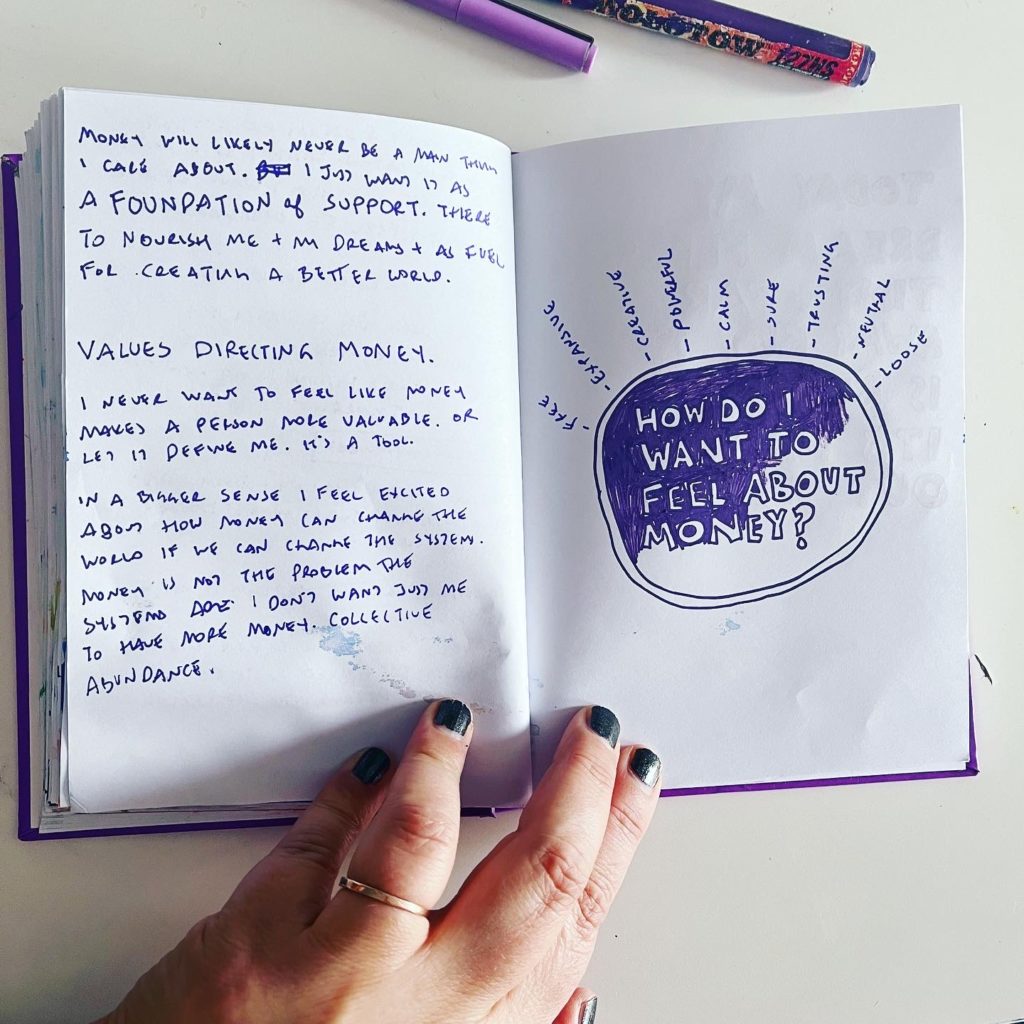 MOLOTOW
MONEY WILL LIKELY NEVER BE A MAIN THING
I CARE ABOUT. I JUST WANT IT AS
A FOUNDATION of SUPPORT. THERE
TO NOURISH ME + MY DREAMS + AS FUEL
FOR CREATING A BETTER WORLD.
VALUES DIRECTING MONEY.
I NEVER WANT TO FEEL LIKE MONEY
MAKES A PERSON MORE VALUABLE. OR
LET IT DEFINE ME. IT'S A TOOL.
IN A BIGGER SENSE I FEEL EXCITED
ABOUT HOW MONEY CAN CHANGE THE
WORLD IF WE CAN CHANGE THE SYSTEM.
MONEY IS NOT THE PROBLEM THE
SYSTEMS ARE. I DON'T WANT JUST ME
TO HAVE MORE MONEY. COLLECTIVE
ABUNDANCE.
- FREE
- EXPANSIVE
- CREATIVE
- POWERFUL
- CALM
- SURE
- TRUSTING
- NEUTRAL
- LOOSE
HOW DO I
WANT TO
FEEL ABOUT
MONEY?